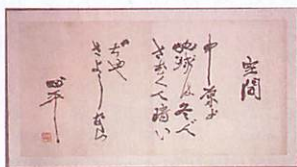 空間
中原よ
地球は冬で
さむくて暗い
ぢや
さようなら
心平